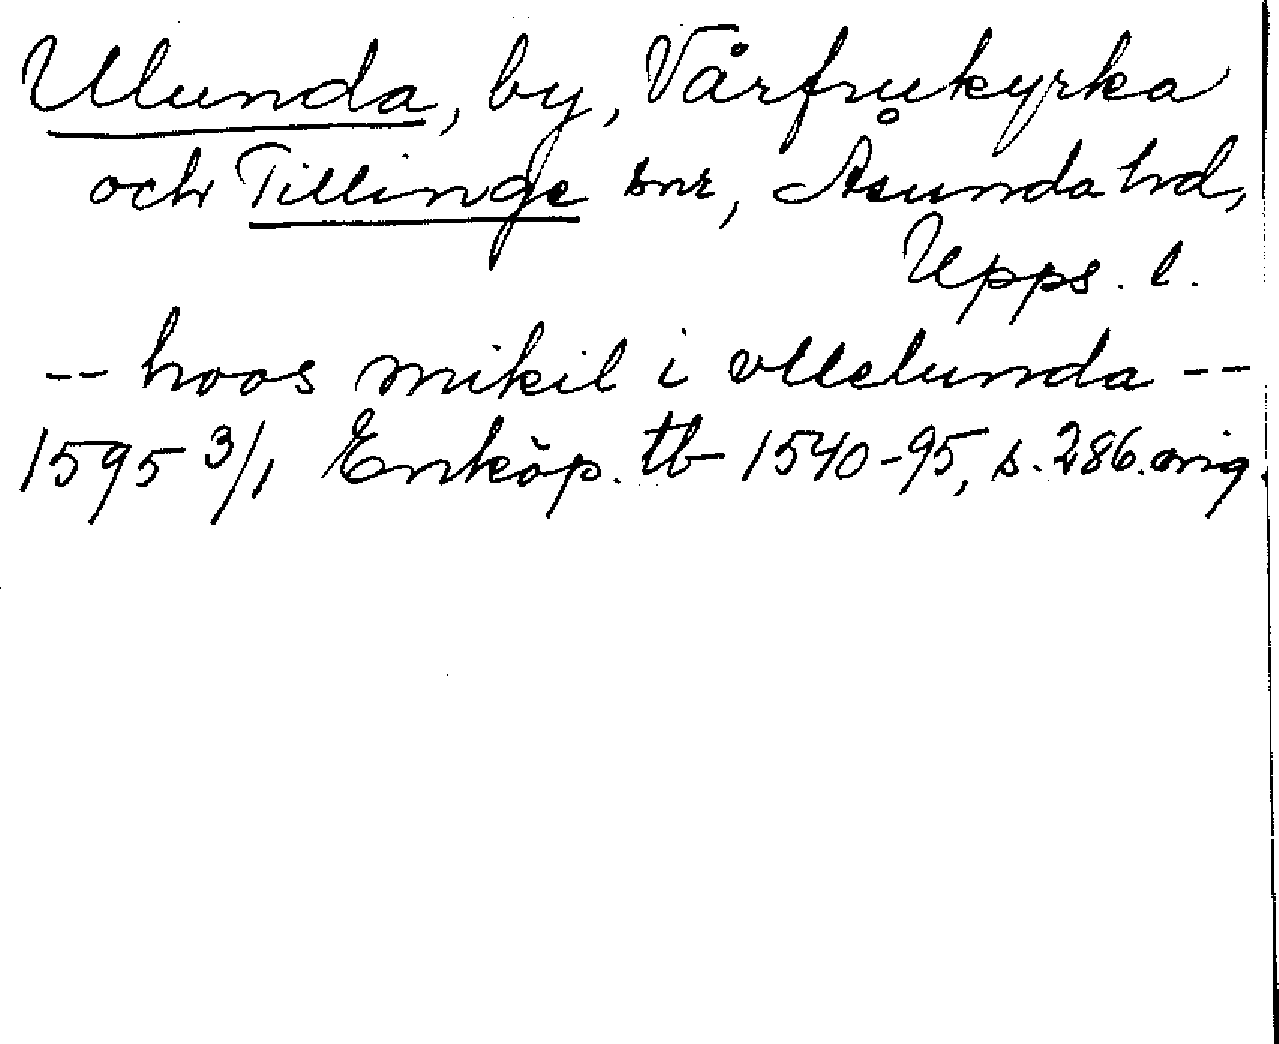 Ulunda, by, Vårfrukyrka
och Tillinge snr, Åsunda hd,
Upps. l.
-- hoos mikil i vllelunda --
1595 3/1 Enköp. tb 1540-95, s. 286. orig.